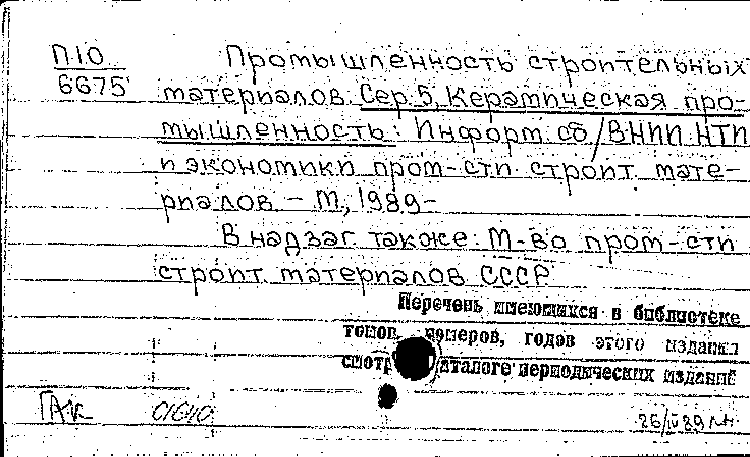 П10
6675
Промышленность строительных
материалов. Сер. 5, Керамическая про-
мышленность: Информ. сб/ВНИИ НТИ
и экономики пром-сти строит. мате-
риалов – М., 1989-
В надзаг. также: М-во пром-сти
строит. материалов СССР
Перечень имеющихся в библиотеке
томов, номеров, годов этого издания
смотр каталоге периодических изданий
26/IV 89